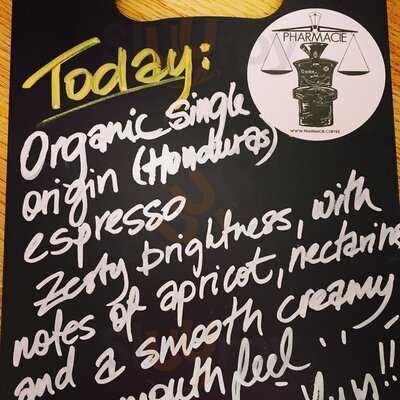 Today:
PHARMACIE
WWW.PHARMACIE.COFFEE
Organic single
origin (Honduras)
espresso
Zesty brightness, with
notes of apricot, nectarine
and a smooth creamy
mouth feel...